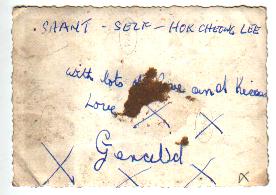 SHANT - SELF - HOK CHEONG LEE
with lots of love and Kisses
Love X X
Gerald
X X X X